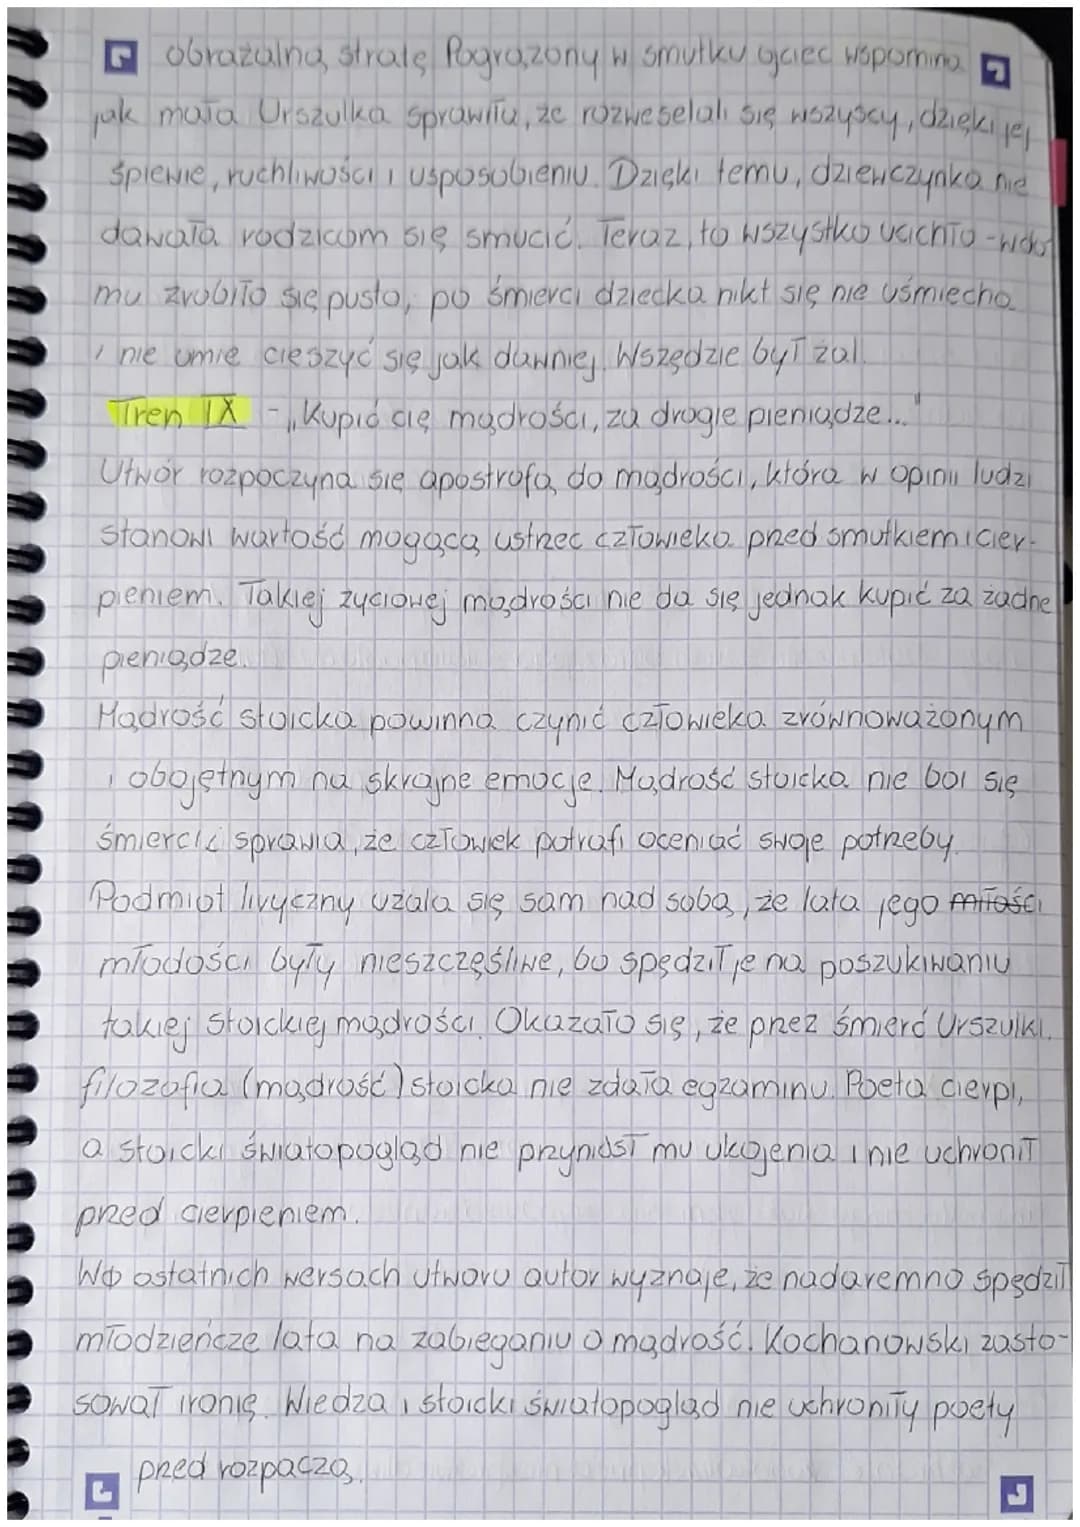 obrażalną stratę Pogrążony w smutku ojciec wspomina
jak mała Urszulka sprawiła, że rozweselali się wszyscy, dzięki jej
śpiewie, ruchliwości i usposobieniu. Dzięki temu, dziewczynka nie
dawała rodzicom się smucić. Teraz, to wszystko ucichło - w do
mu zrobiło się pusto, po śmierci dziecka nikt się nie uśmiecha
i nie umie cieszyć się jak dawniej. Wszędzie był żal.
Tren IX - „Kupić cię mądrości, za drogie pieniądze..."
Utwór rozpoczyna się apostrofą do mądrości, która w opinii ludzi
stanowi wartość mogącą ustrzec człowieka przed smutkiem i cier-
pieniem. Takiej życiowej mądrości nie da się jednak kupić za żadne
pieniądze.
Mądrość stoicka powinna czynić człowieka zrównoważonym
i obojętnym na skrajne emocje. Mądrość stoicka nie boi się
śmierci i sprawia, że człowiek potrafi oceniać swoje potrzeby.
Podmiot liryczny użala się sam nad sobą, że lata jego miłości
młodości były nieszczęśliwe, bo spędził je na poszukiwaniu
takiej stoickiej mądrości. Okazało się, że przez śmierć Urszulki
filozofia (mądrość) stoicka nie zdała egzaminu. Poeta cierpi,
a stoicki światopogląd nie przyniósł mu ukojenia i nie uchronił
przed cierpieniem.
W ostatnich wersach utworu autor wyznaje, że nadaremno spędził
młodzieńcze lata na zabieganiu o mądrość. Kochanowski zasto-
sował ironię. Wiedza i stoicki światopogląd nie uchroniły poety
przed rozpaczą.